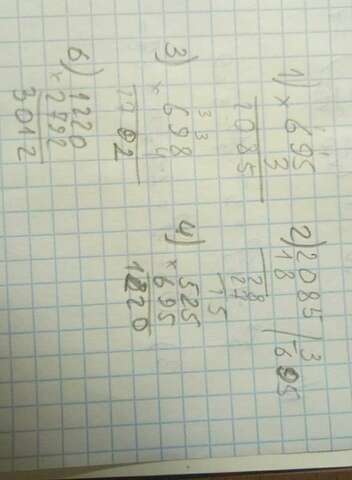 1) × 695
3
2085
2) 2085 / 3
18 695
28
27
15
3 3
3) × 698
4
2792
4) × 525
695
1220
6) 1220
× 2792
3012